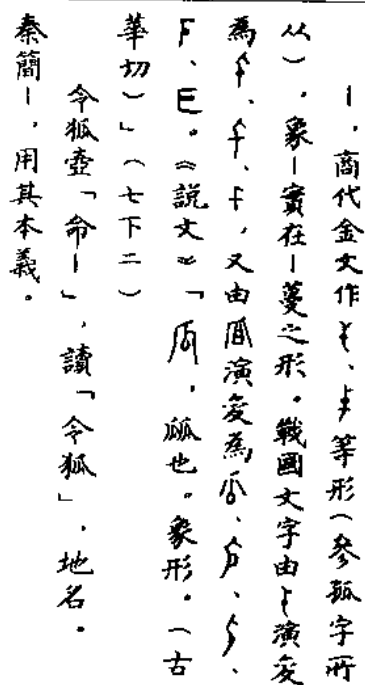 ｜，商代金文作、等形（參狐字所
从），象｜實在｜蔓之形。戰國文字由演變
為、、，又由演變為、、、
、。《說文》「，㼌也。象形。（古
華切）」（七下二）
令狐壺「命｜」，讀「令狐」，地名。
秦簡｜，用其本義。